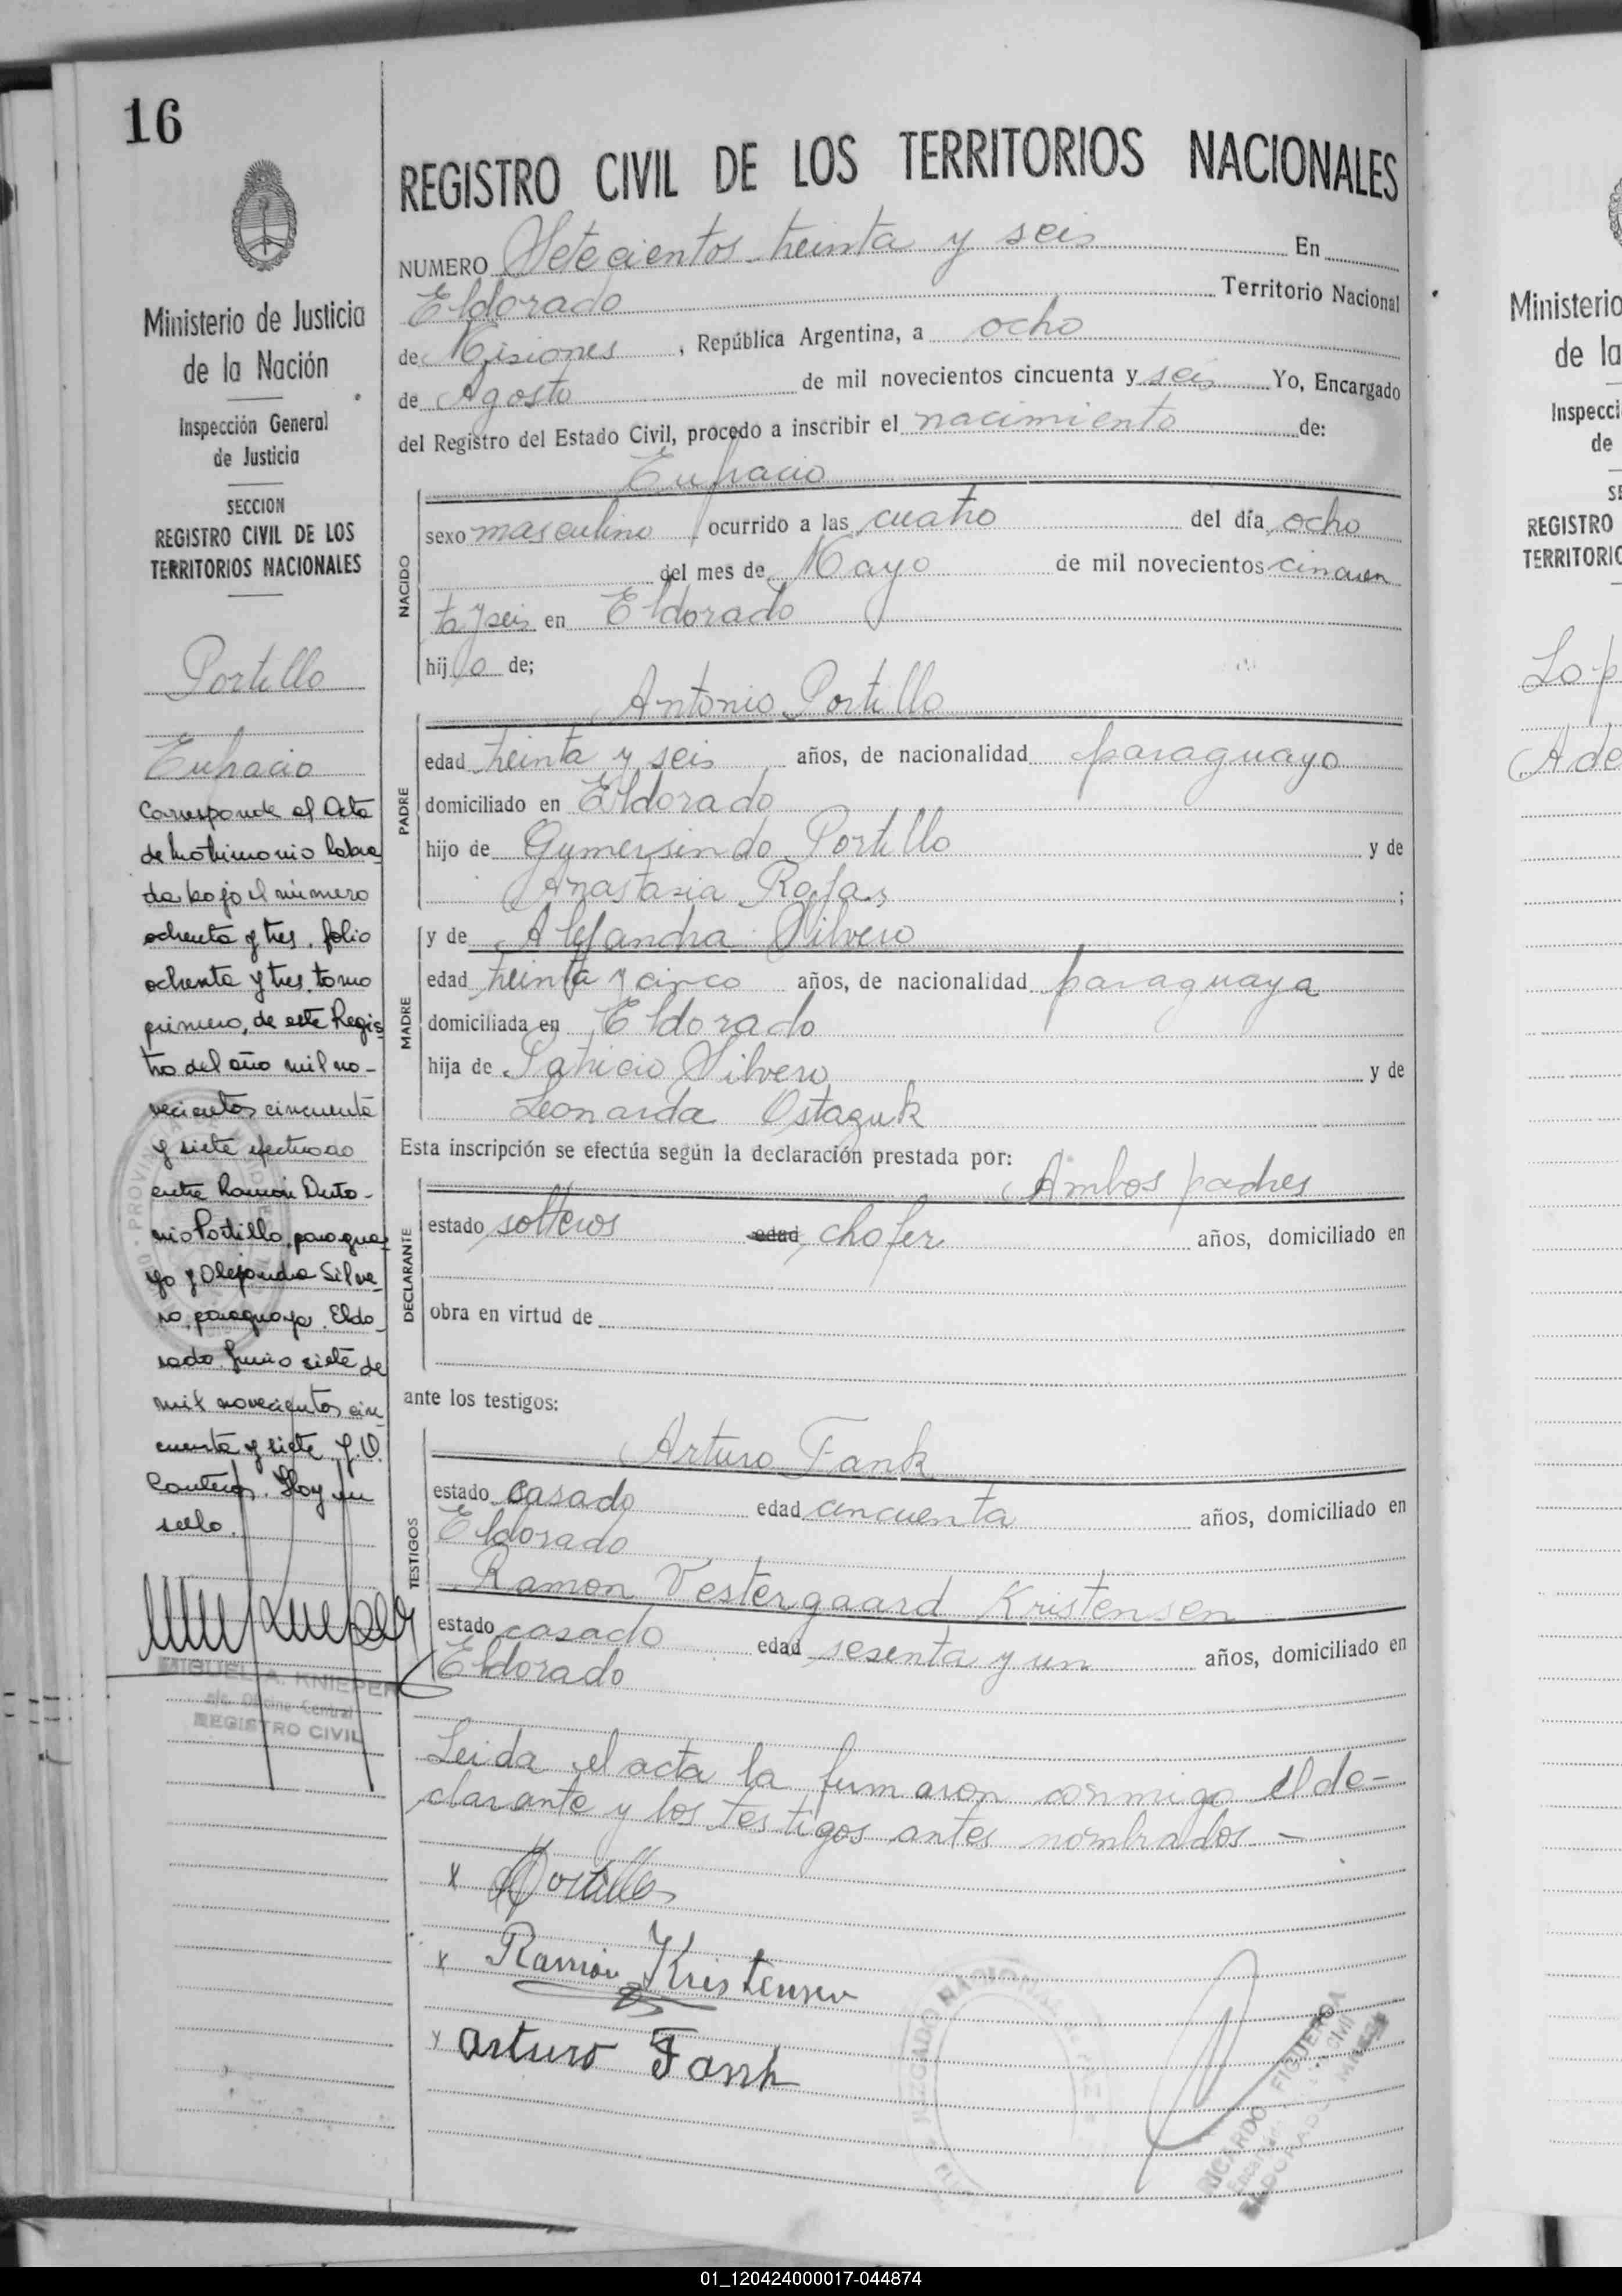 16
Ministerio de Justicia
de la Nación
Inspección General
de Justicia
SECCION
REGISTRO CIVIL DE LOS
TERRITORIOS NACIONALES
Portillo
Eufracio
Corresponde al Acta
de matrimonio labra
da bajo el número
ochenta y tres, folio
ochenta y tres, tomo
primero, de este Regis
tro del año mil no-
vecientos cincuenta
y siete efectuado
entre Ramón Anto-
nio Portillo, paragua
yo y Alejandra Silve
ro, paraguaya. Eldo
rado Junio siete de
mil novecientos cin
cuenta y siete. J.O.
Hay un
sello.
MIGUEL A. KNIEPER
Oficina Central
REGISTRO CIVIL
REGISTRO CIVIL DE LOS TERRITORIOS NACIONALES
NUMERO Setecientos treinta y seis En
Eldorado Territorio Nacional
de Misiones, República Argentina, a ocho
de Agosto de mil novecientos cincuenta y seis Yo, Encargado
del Registro del Estado Civil, procedo a inscribir el nacimiento de:
Eufracio
NACIDO
sexo masculino ocurrido a las cuatro del día ocho
del mes de Mayo de mil novecientos cincuen
ta y seis en Eldorado
hijo de;
Antonio Portillo
PADRE
edad treinta y seis años, de nacionalidad paraguayo
domiciliado en Eldorado
hijo de Gumersindo Portillo y de
Anastasia Rojas;
y de Alejandra Silvero
MADRE
edad treinta y cinco años, de nacionalidad paraguaya
domiciliada en Eldorado
hija de Patricio Silvero y de
Leonarda Ostazuk
Esta inscripción se efectúa según la declaración prestada por:
Ambos padres
DECLARANTE
estado solteros edad chofer años, domiciliado en
obra en virtud de
ante los testigos:
Arturo Fank
TESTIGOS
estado casado edad cincuenta años, domiciliado en
Eldorado
Ramon Vestergaard Kristensen
estado casado edad sesenta y un años, domiciliado en
Eldorado
Leida el acta la firmaron conmigo el de-
clarante y los testigos antes nombrados.-
x Portillo
x Ramón Kristensen
x Arturo Fank
JUZGADO NACIONAL
RICARDO FIGUEROA
ELDORADO
Ministerio
de la
Inspecci
de
SE
REGISTRO
TERRITORIO
Lop
Ade
01_120424000017-044874